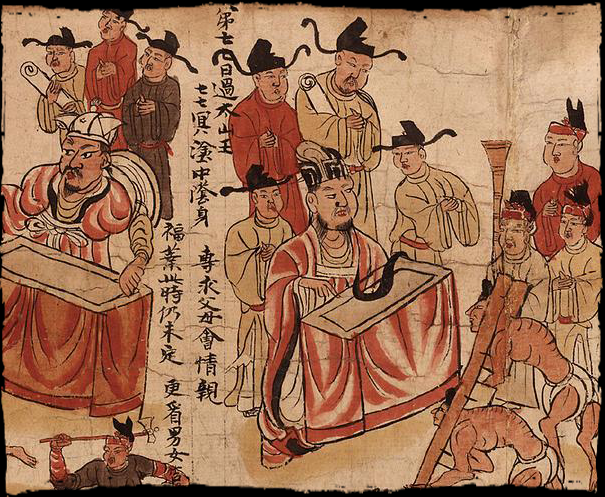 第七七日過太山王
七七冥塗中陰身 專求父母會情親
福業此時仍未定 更看男女造